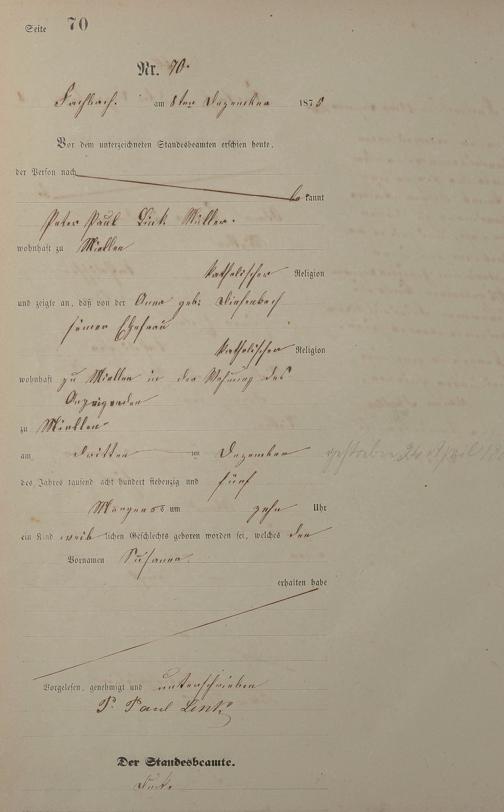 Seite 70
Nr. 70.
Fachbach. am 8ten Dezember 1875
Vor dem unterzeichneten Standesbeamten erschien heute,
der Person nach
be kannt
Peter Paul Link Müller.
wohnhaft zu Miellen
katholischer Religion
und zeigte an, daß von der Anna geb: Diefenbach
seiner Ehefrau
katholischer Religion
wohnhaft zu Miellen in der Wohnung des
Anzeigenden
zu Miellen
am dritten im Dezember
gestorben 24 April
des Jahres tausend acht hundert siebenzig und fünf
Morgens um zehn Uhr
ein Kind weib lichen Geschlechts geboren worden sei, welches den
Vornamen Susanna
erhalten habe
Vorgelesen, genehmigt und unterschrieben
P. Paul Link
Der Standesbeamte.